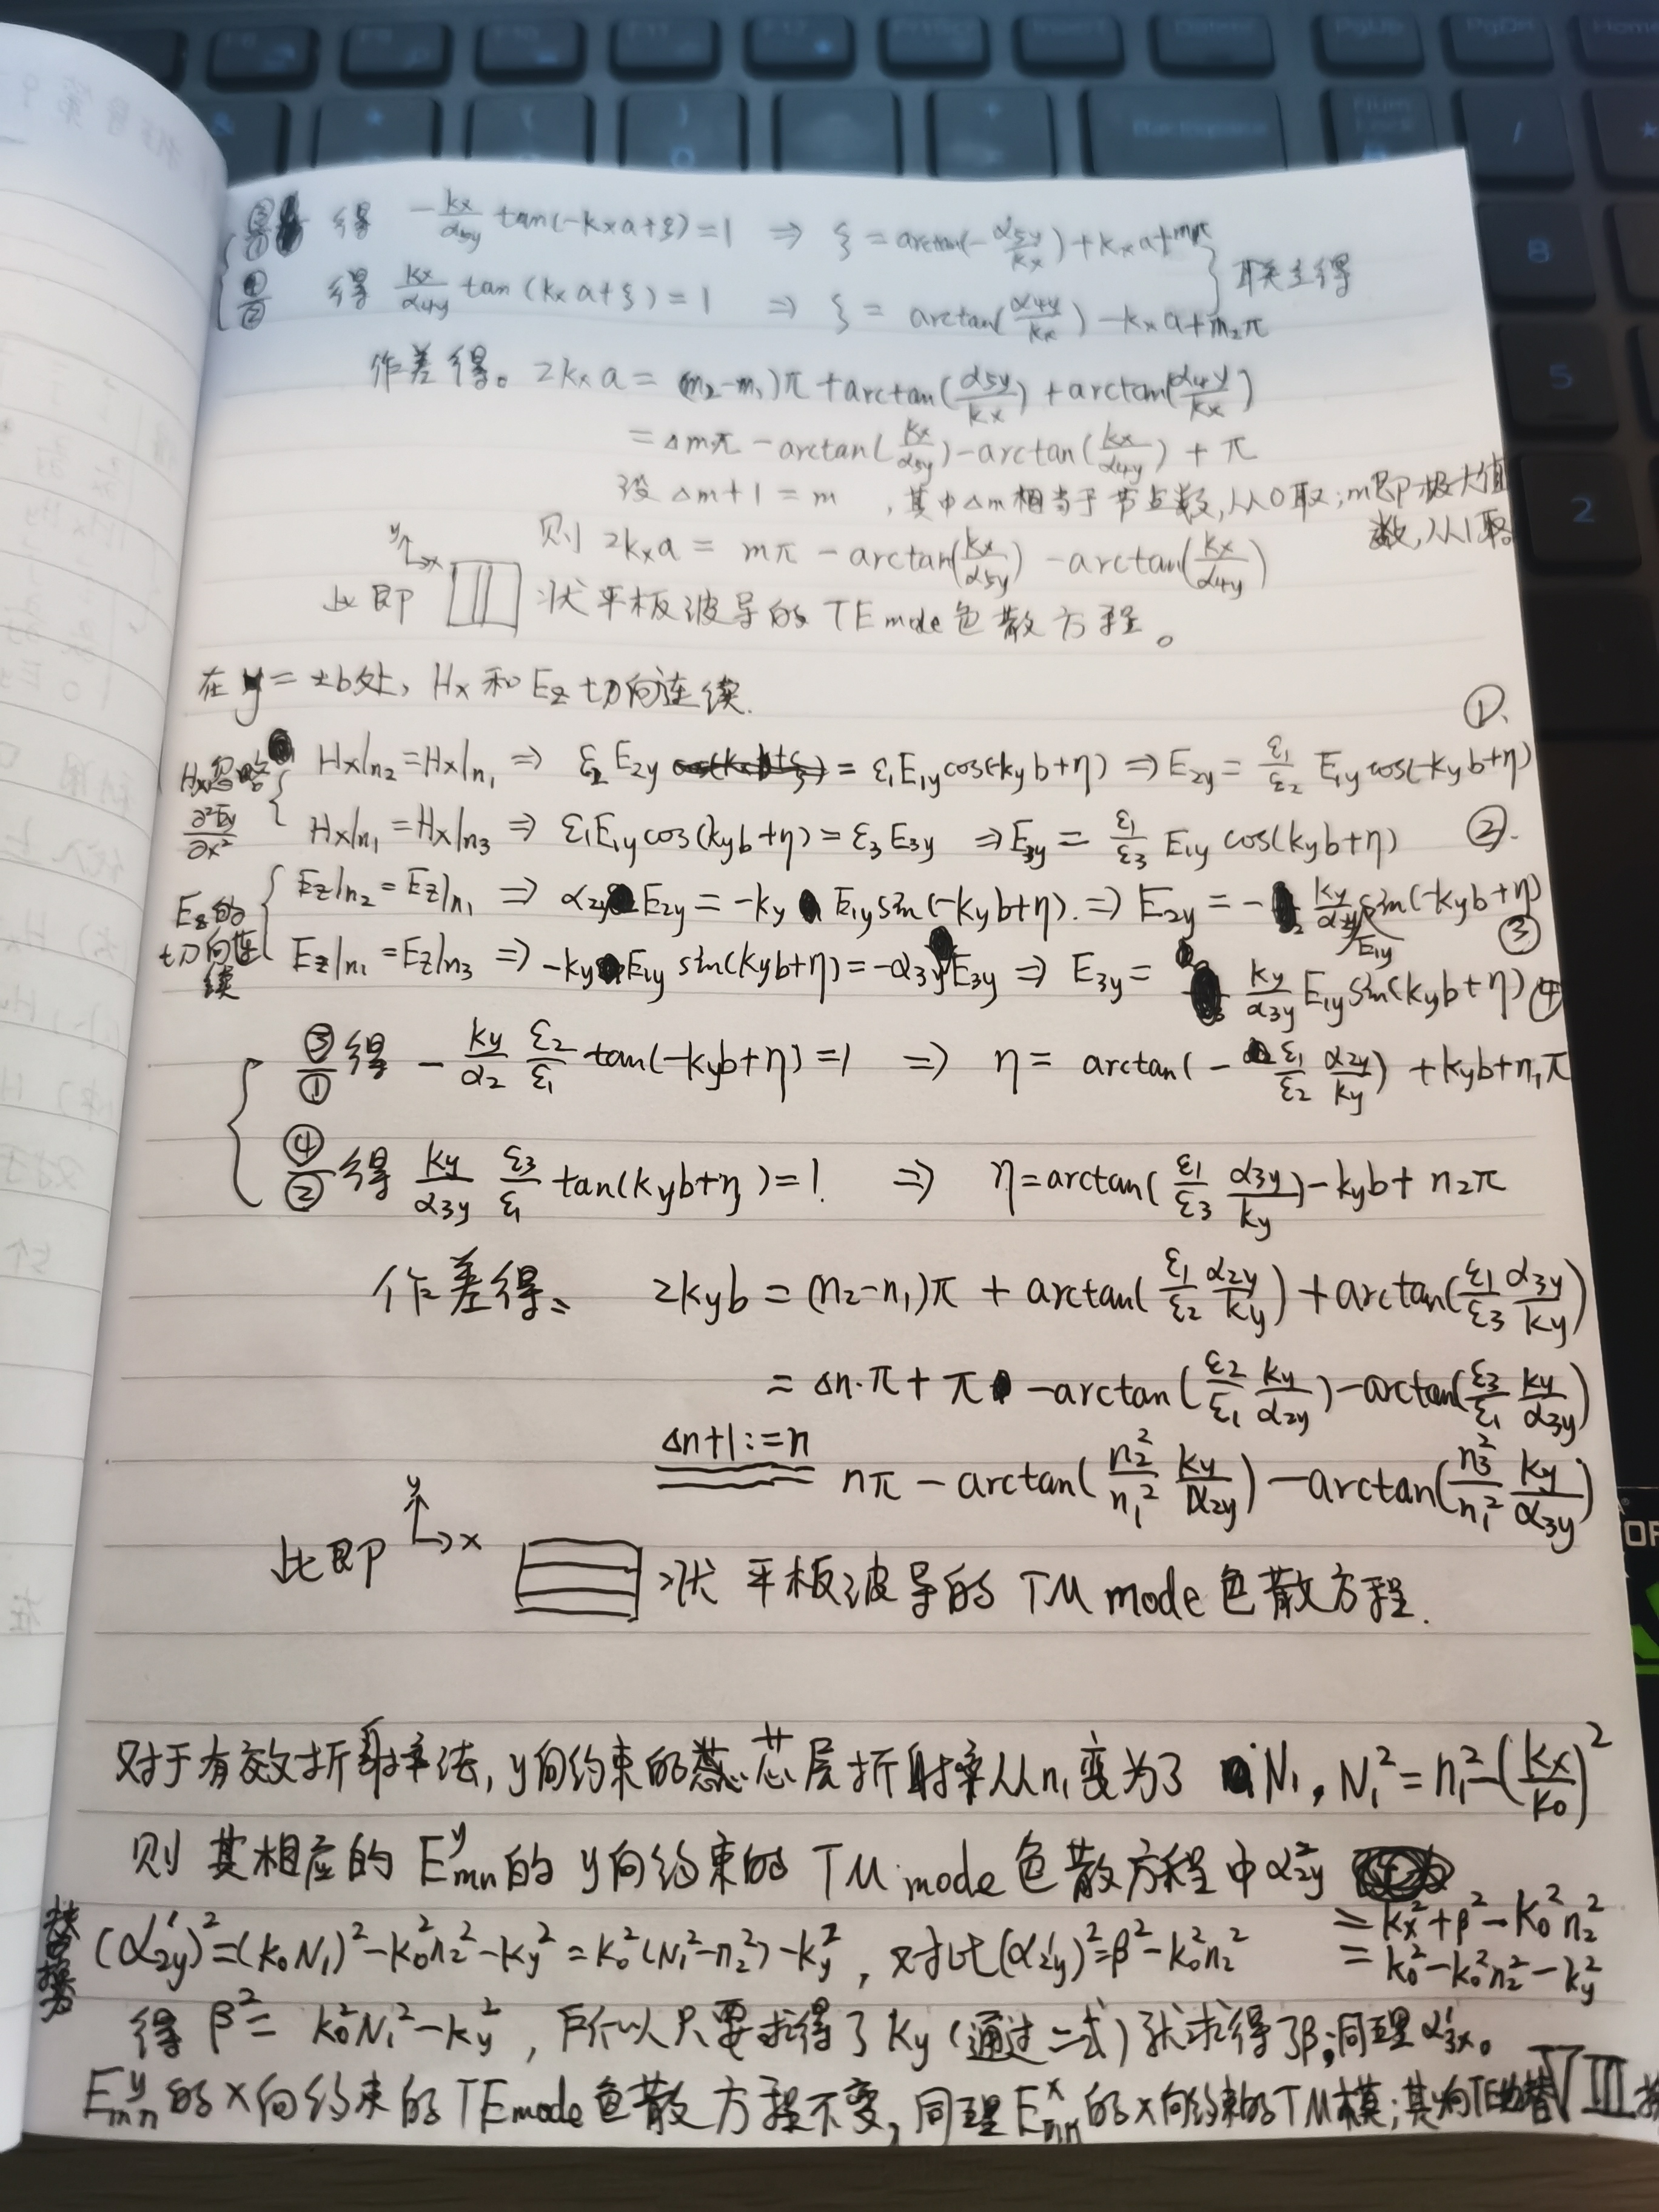 ③/① 得 -kx/α5y tan(-kxa+ξ)=1 ⇒ ξ=arctan(-α5y/kx)+kxa+m1π
④/② 得 kx/α4y tan(kxa+ξ)=1 ⇒ ξ=arctan(α4y/kx)-kxa+m2π
联立得
作差得。2kxa=(m2-m1)π+arctan(α5y/kx)+arctan(α4y/kx)
=Δmπ-arctan(kx/α5y)-arctan(kx/α4y)+π
设Δm+1=m,其中Δm相当于节点数,从0取;m即极大值
数,从1取
则 2kxa=mπ-arctan(kx/α5y)-arctan(kx/α4y)
y x
此即 状平板波导的TE mode色散方程。
在y=±b处,Hx和Ez切向连续.
①.
Hx忽略 Hx|n2=Hx|n1 ⇒ ε2E2y=ε1E1ycos(-kyb+η) ⇒ E2y=ε1/ε2 E1ycos(-kyb+η)
∂²Ey/∂x² Hx|n1=Hx|n3 ⇒ ε1E1ycos(kyb+η)=ε3E3y ⇒ E3y=ε1/ε3 E1ycos(kyb+η) ②.
Ez的 Ez|n2=Ez|n1 ⇒ α2yE2y=-kyE1ysin(-kyb+η).⇒ E2y=-ky/α2y E1y sin(-kyb+η) ③
切向连续 Ez|n1=Ez|n3 ⇒ -kyE1ysin(kyb+η)=-α3yE3y ⇒ E3y=ky/α3y E1ysin(kyb+η) ④
③/① 得 -ky/α2 ε2/ε1 tan(-kyb+η)=1 ⇒ η=arctan(-ε1/ε2 α2y/ky)+kyb+n1π
④/② 得 ky/α3y ε3/ε1 tan(kyb+η)=1. ⇒ η=arctan(ε1/ε3 α3y/ky)-kyb+n2π
作差得: 2kyb=(n2-n1)π+arctan(ε1/ε2 α2y/ky)+arctan(ε1/ε3 α3y/ky)
=Δn·π+π-arctan(ε2/ε1 ky/α2y)-arctan(ε3/ε1 ky/α3y)
Δn+1:=n
nπ-arctan(n2²/n1² ky/α2y)-arctan(n3²/n1² ky/α3y)
y x
此即 状平板波导的TM mode色散方程.
对于有效折射率法,y向约束的芯层折射率从n1变为了N1,N1²=n1²-(kx/k0)²
则其相应的E^y_mn的y向约束的TM mode色散方程中α2y²
=kx²+β²-k0²n2²
(α2y')²=(k0N1)²-k0²n2²-ky²=k0²(N1²-n2²)-ky²,对比(α2y')²=β²-k0²n2²
=k0²-k0²n2²-ky²
得β²=k0²N1²-ky²,所以只要求得了ky(通过二式)就求得了β;同理α3x'。
E^y_mn的x向约束的TE mode色散方程不变,同理E^x_mn的x向约束的TM模;其
VIII